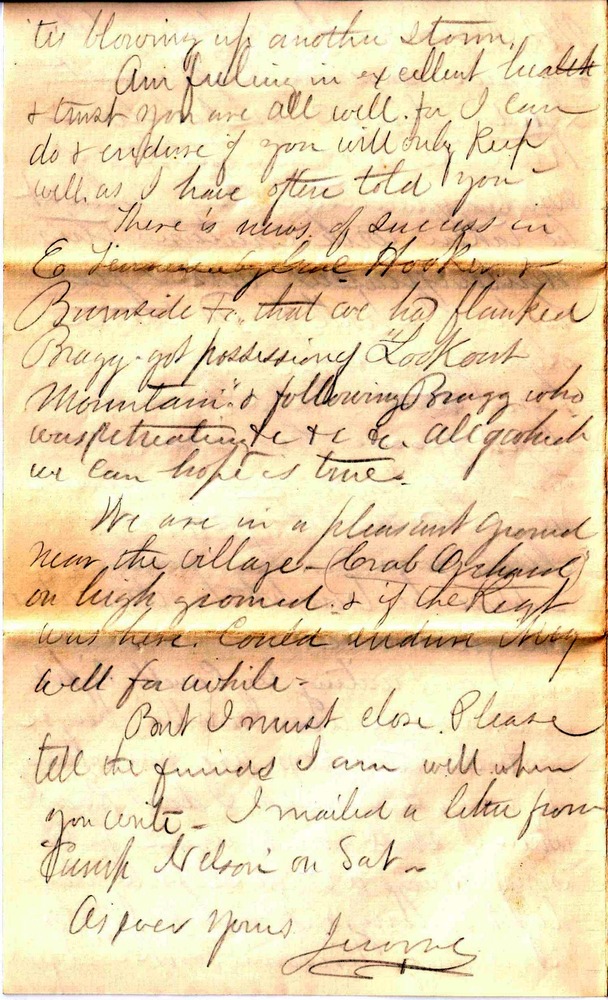 tis blowing up another storm.
Am feeling in excellent health
& trust you are all well. for I can
do & endure if you will only keep
well as I have often told you -
There is news of success in
E Tennessee by Genl Hooker &
Burnside &c, that we had flanked
Bragg - got possession of "Lookout
Mountain" & following Bragg who
was retreating &c &c &c. all of which
we can hope is true.
We are in a pleasant ground
near the village - (Crab Orchard)
on high ground. & if the Regt
was here. Could endure
well for awhile -
But I must close. Please
tell the friends I am well when
you write - I mailed a letter from
"Camp Nelson" on Sat -
As ever yours Jerome